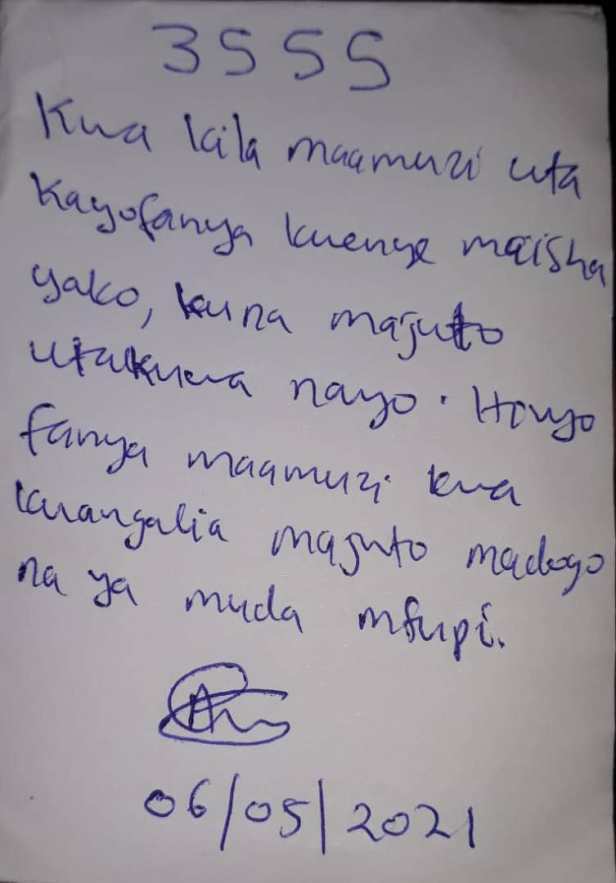 3555
Kwa kila maamuzi uta
kayofanya kwenye maisha
yako, kuna majuto
utakuwa nayo. Hivyo
fanya maamuzi kwa
kuangalia majuto madogo
na ya muda mfupi.
06/05/2021